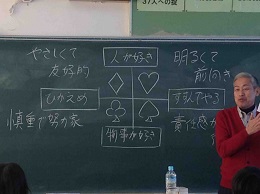 やさしくて
友好的
人が好き
明るくて
前向き
ひかえめ
すすんでやる
慎重で努力家
物事が好き
責任感が